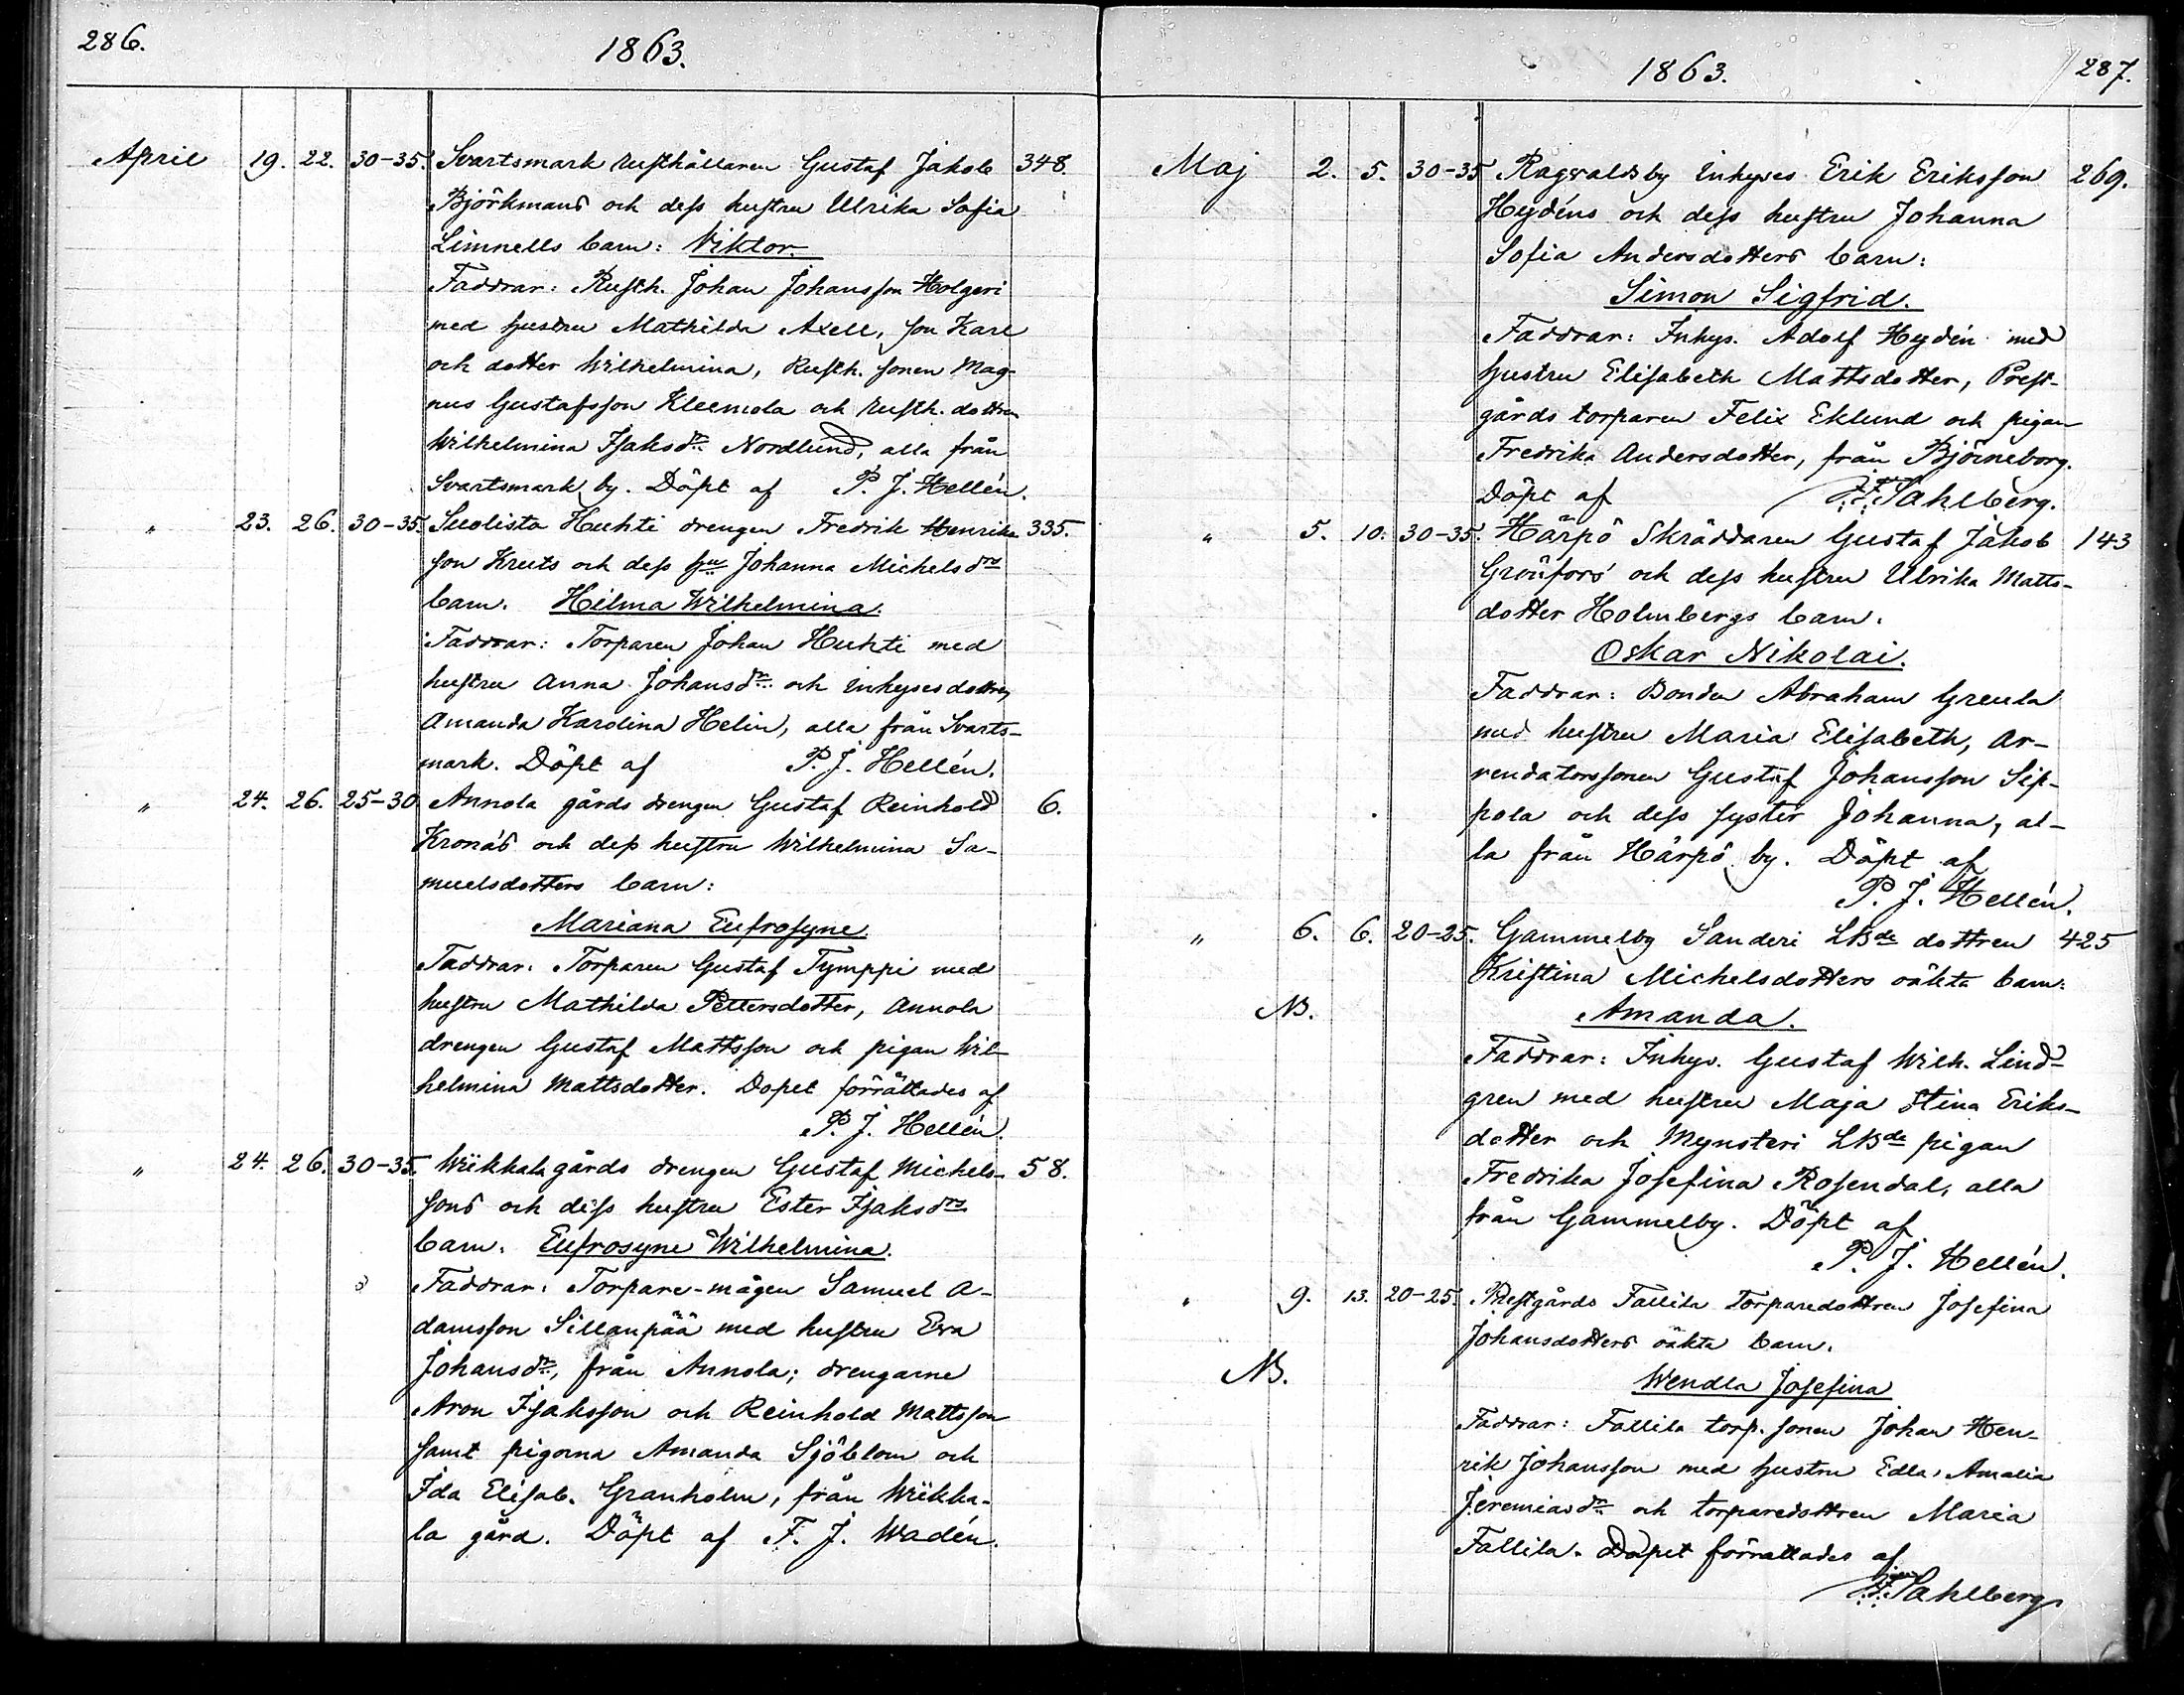 286.
1863.
April 19. 22. 30-35. Svartsmark rusthållaren Gustaf Jakob 348.
Björkmans och dess hustru Ulrika Sofia
Limnells barn: Viktor.
Faddrar: Rusth. Johan Johansson Holgeri
med hustru Mathilda Axell, son Karl
och dotter Wilhelmina, Rusth. sonen Mag-
nus Gustafsson Kleemola och rusth. dottren
Wilhelmina Isaksdr. Nordlund, alla från
Svartsmark by. Döpt af P. J. Hellén.
" 23. 26. 30-35. Suolista Huhti drengen Fredrik Henriks- 335.
son Kruts och dess hu Johanna Michelsdrs
barn. Hilma Wilhelmina.
Faddrar: Torparen Johan Huhti med
hustru Anna Johansdr. och inhysesdottren
Amanda Karolina Helin, alla från Svarts-
mark. Döpt af P. J. Hellén.
" 24. 26. 25-30 Annola gårds drengen Gustaf Reinhold 6.
Kronás och dess hustru Wilhelmina Sa-
muelsdotters barn:
Mariana Eufrosyne.
Faddrar. Torparen Gustaf Tymppi med
hustru Mathilda Pettersdotter, Annola
drengen Gustaf Mattsson och pigan Wil-
helmina Mattsdotter. Dopet förrättades af
P. J. Hellén.
" 24. 26. 30-35. Wiikkala gårds drengen Gustaf Michels- 58.
sons och dess hustru Ester Isaksdrs
barn. Eufrosyne Wilhelmina.
Faddrar: Torpare-mågen Samuel A-
damsson Sillanpää med hustru Eva
Johansdr, från Annola; drengarne
Aron Isaksson och Reinhold Mattsson
samt pigorna Amanda Sjöblom och
Ida Elisab. Granholm, från Wiikka-
la gård. Döpt af F. J. Wadén.
1863.
287.
Maj 2. 5. 30-35 Ragvaldsby Inhyses Erik Eriksson 269.
Hydéns och dess hustru Johanna
Sofia Andersdotters barn:
Simon Sigfrid.
Faddrar: Inhys. Adolf Hydén med
hustru Elisabeth Mattsdotter, Prest-
gårds torparen Felix Eklund och pigan
Fredrika Andersdotter, från Björneborg.
Döpt af Sahlberg.
" 5. 10. 30-35. Härpö Skräddaren Gustaf Jakob 143
Grönfors och dess hustru Ulrika Matts-
dotter Holmbergs barn.
Oskar Nikolai.
Faddrar: Bonden Abraham Greula
med hustru Maria Elisabeth, Ar-
rendatorssonen Gustaf Johansson Sip-
pola och dess syster Johanna, al-
la från Härpö by. Döpt af
P. J. Hellén.
" 6. 6. 20-25. Gammelby Sanderi LBde dottren 425
Kristina Michelsdotters oäkta barn:
NB. Amanda.
Faddrar: Inhys. Gustaf Wilh. Lind-
gren med hustru Maja Stina Eriks-
dotter och Mynsteri LBde pigan
Fredrika Josefina Rosendal, alla
från Gammelby. Döpt af
P. J. Hellén.
" 9. 13. 20-25. Prestgårds Fallila Torparedottren Josefina
Johansdotters oäkta barn.
NB. Wendla Josefina
Faddrar: Fallila torp. sonen Johan Hen-
rik Johansson med hustru Edla Amalia
Jeremiasdr. och torparedottren Maria
Fallila. Dopet förrättades af
Sahlberg